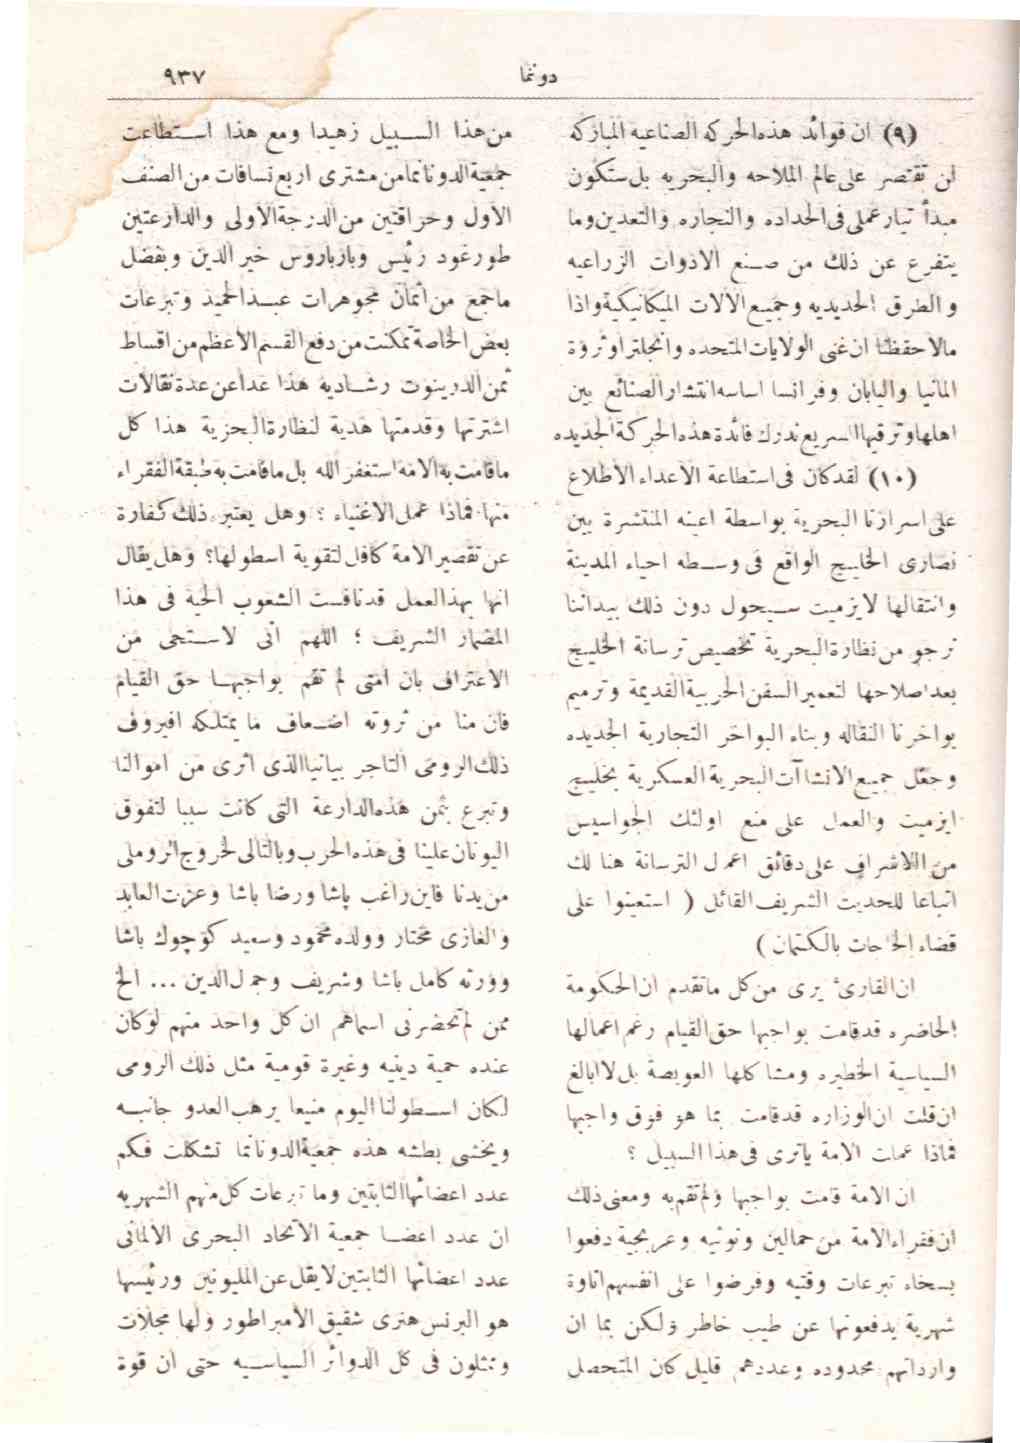 دوننما
٩٣٧
(٩) ان فوائد هذه الحركه الصناعيه المباركه
لن تقتصر على عالم الملاحه والبحريه بل ستكون
مبدأ تيار عملى فى الحداده والنجاره والتعدين وما
يتفرع عن ذلك من صنع الادوات الزراعيه
والطرق الحديديه وجميع الآلات الميكانيكية واذا
مالاحظنا ان غنى الولايات المتحده وانجلترا وثروة
المانيا واليابان وفرانسا اساسه انتشار الصنائع بين
اهلها وترقيها السريع ندرك فائدة هذه الحركة الجديده
(١٠) لقد كان فى استطاعة الاعداء الاطلاع
على اسرارنا البحرية بواسطة اعينه المنتشرة بين
نصارى الخليج الواقع فى وسطه احياء المدينة
وانتقالها لايزميت سيحول دون ذلك بيد اننا
نرجو من نظارة البحرية تخصيص ترسانة الخليج
بعد اصلاحها لتعمير السفن الحربية القديمة وترميم
بواخرنا النقاله وبناء البواخر التجارية الجديده
وجعل جميع الانشاآت البحرية العسكرية بخليج
ايزميت والعمل على منع اولئك الجواسيس
من الاشراف على دقائق اعمال الترسانة هنا لك
اتباعا للحديث الشريف القائل ( استعينوا على
قضاء الحاجات بالكتمان )
ان القارئ يرى من كل ماتقدم ان الحكومة
الحاضره قد قامت بواجبها حق القيام رغم اعمالها
السياسية الخطيره ومشاكلها العويصة بل لا ابالغ
ان قلت ان الوزاره قد قامت بما هو فوق واجبها
فماذا عملت الامة ياترى فى هذا السبيل ؟
ان الامة قامت بواجبها ولم تقم به ومعنى ذلك
ان فقراء الامة من حمالين ونوتيه وعربجية دفعوا
بسخاء تبرعات وقتيه وفرضوا على انفسهم اتاوة
شهرية يدفعونها عن طيب خاطر ولكن بما ان
وارداتهم محدوده وعددهم قليل كان المتحصل
من هذا السبيل زهيدا ومع هذا استطاعت
جمعية الدوناننما من مشترى اربع نسافات من الصنف
الاول وحراقتين من الدرجة الاولى والدارعتين
طورغود رئيس وبارباروس خير الدين وبفضل
ماجمع من اثمان مجوهرات عبد الحميد وتبرعات
بعض الخاصة تمكنت من دفع القسم الأعظم من اقساط
ثمن الدرينوت رشادية هذا عدا عن عدة نقالات
اشترتها وقدمتها هدية لنظارة البحرية هذا كل
ماقامت به الامة استغفر الله بل ماقامت به طبقة الفقراء
منها. فماذا عمل الاغنياء ؟ وهل يعتبر ذلك كفارة
عن تقصير الامة كافل لتقوية اسطولها؟ وهل يقال
انها بهذا العمل قد نافست الشعوب الحية فى هذا
المضمار الشريف ؛ اللهم انى لاستحى من
الاعتراف بان امتى لم تقم بواجبها حق القيام
فان منا من ثروته اضعاف ما يمتلكه افيروف
ذلك الرومى التاجر بيانيا الذى اثرى من اموالنا
وتبرع بثمن هذه الدارعة التى كانت سببا لتفوق
اليونان علينا فى هذه الحرب وبالتالى لخروج الرومللى
من يدنا فاين راغب پاشا ورضا باشا وعزت العابد
والغازى مختار وولده محمود وسعيد كوچوك باشا
وورثه كامل باشا وشريف وجمال الدين ... الخ
ممن لم تحضرنى اسماهم ان كل واحد منهم لو كان
عنده حمية دينيه وغيرة قومية مثل ذلك الرومى
لكان اسطولنا اليوم منيعا يرهب العدو جانبه
ويخشى بطشه هذه جمعية الدوناننما تشكلت فكم
عدد اعضائها الثابتين وما تبرعات كل منهم الشهريه
ان عدد اعضا جمعية الاتحاد البحرى الالمانى
عدد اعضائها الثابتين لايقل عن المليونين ورئيسها
هو البرنس هنرى شقيق الامبراطور ولها مجلات
وممثلون فى كل الدوائر السياسيه حتى ان قوة